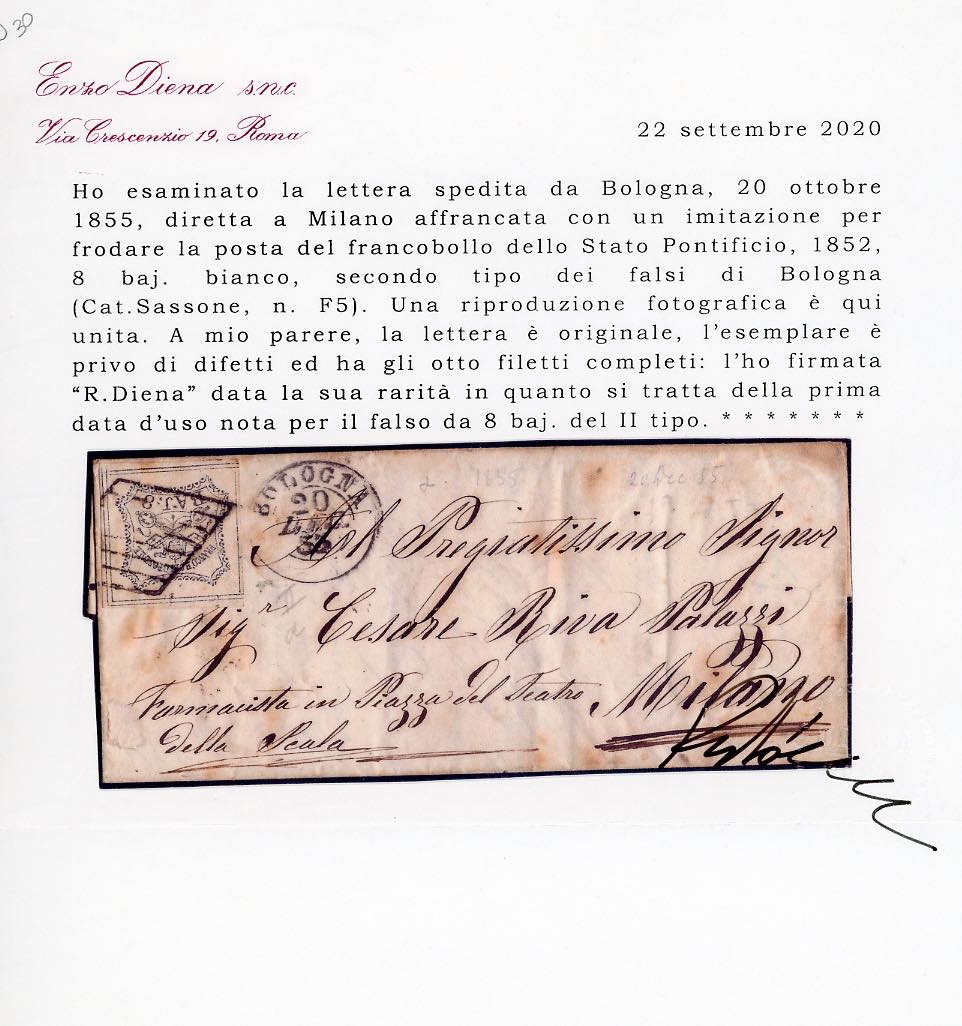 30
Enzo Diena s.n.c.
Via Crescenzio 19, Roma
22 settembre 2020
Ho esaminato la lettera spedita da Bologna, 20 ottobre
1855, diretta a Milano affrancata con un imitazione per
frodare la posta del francobollo dello Stato Pontificio, 1852,
8 baj. bianco, secondo tipo dei falsi di Bologna
(Cat.Sassone, n. F5). Una riproduzione fotografica è qui
unita. A mio parere, la lettera è originale, l'esemplare è
privo di difetti ed ha gli otto filetti completi: l'ho firmata
“R.Diena” data la sua rarità in quanto si tratta della prima
data d'uso nota per il falso da 8 baj. del II tipo. * * * * * * *
BAJ. 8
BOLOGNA
20
55
1855
Al Pregiatissimo Signor
Sigr Cesare Riva Palazzi
Farmacista in Piazza del Teatro Milano
della Scala